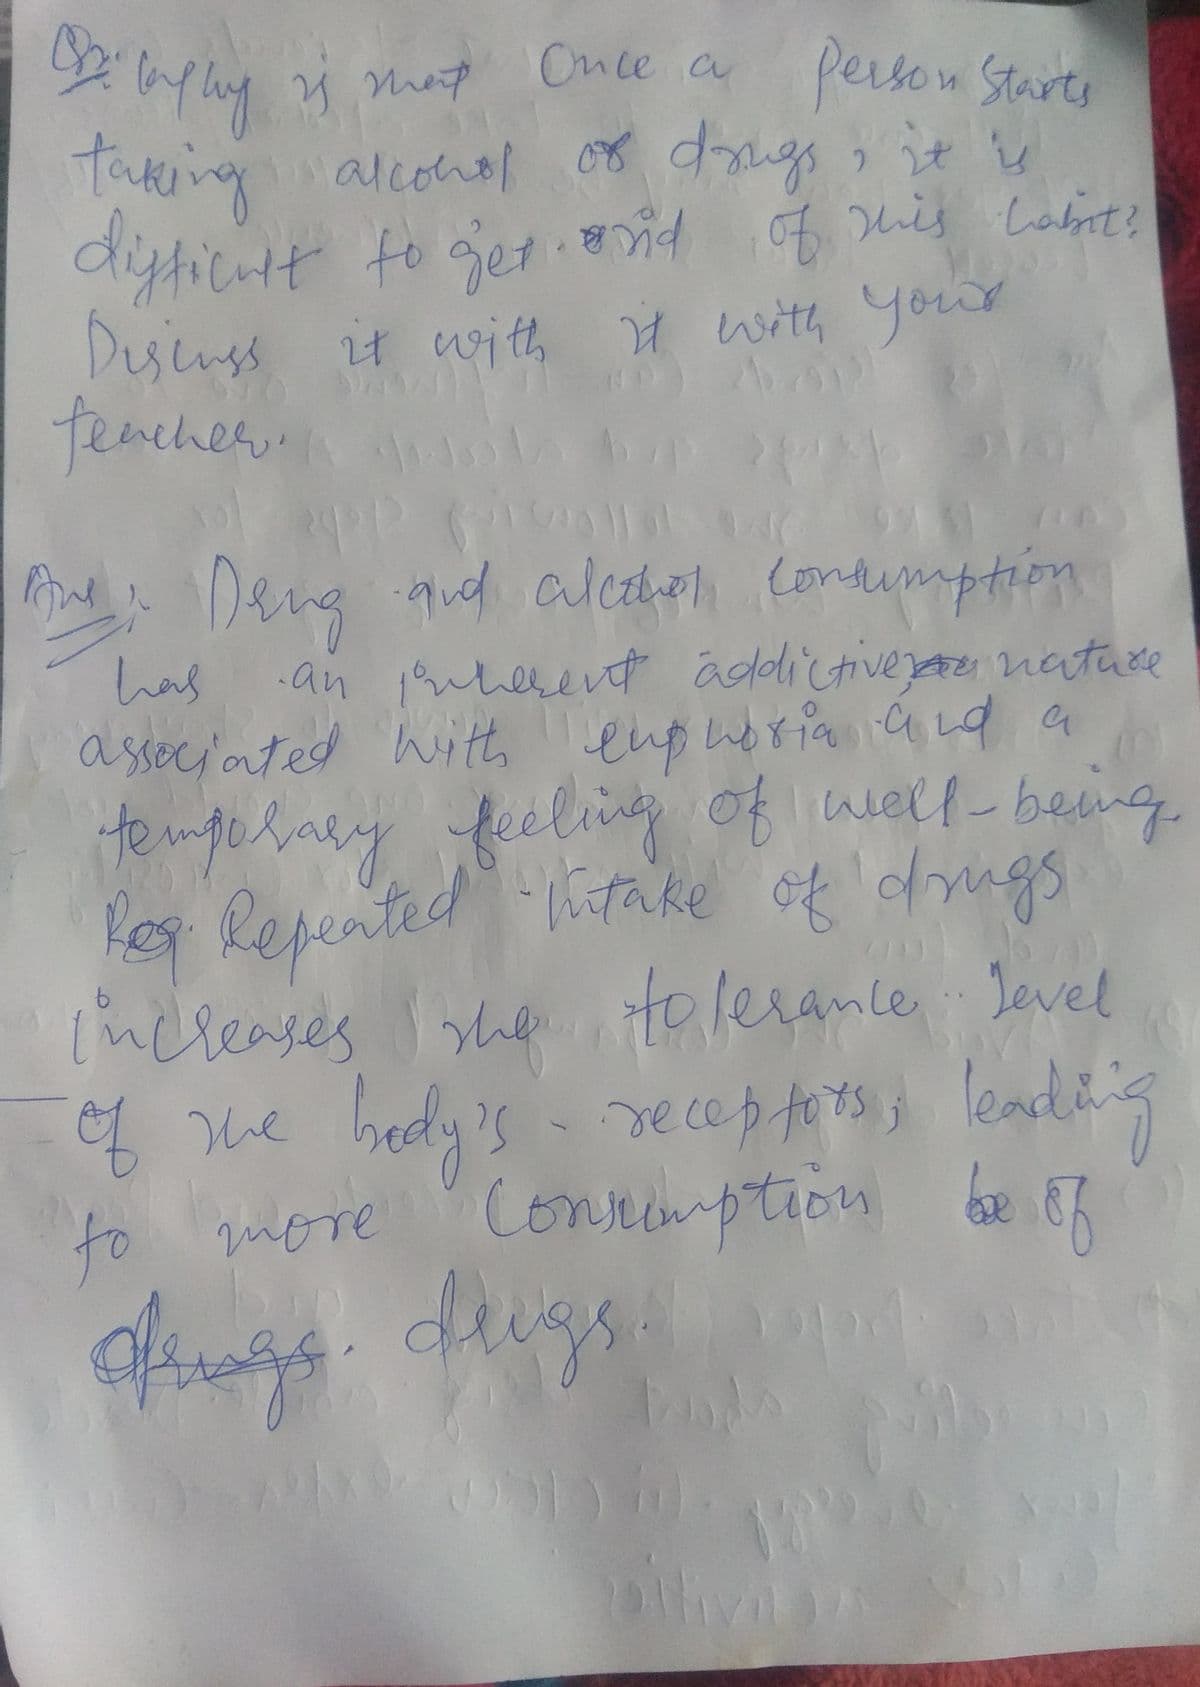 Q: Why is that Once a person starts
taking alcohol or drugs, it is
difficult to get rid of this habit?
Discuss it with it with your
teacher.
Ans: Drug and alcohol consumption
has an inherent addictive nature
associated with euphoria and a
temporary feeling of well-being.
Rep. Repeated intake of drugs
increases the tolerance level
of the body's receptors; leading
to more Consumption be of
drugs. drugs.